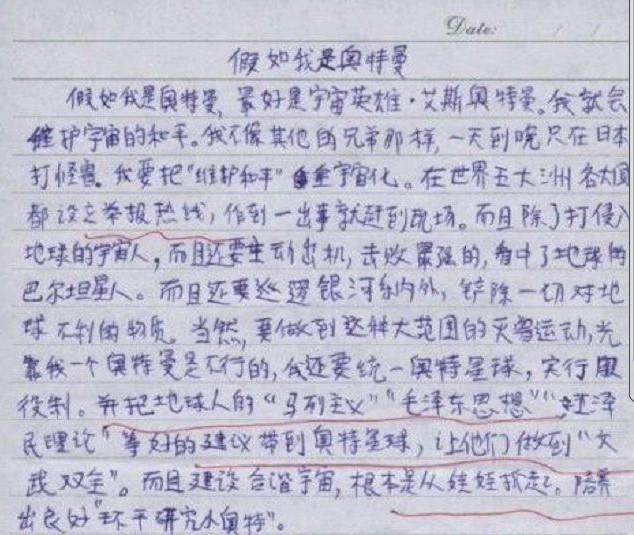 Date: / /
假如我是奥特曼
假如我是奥特曼，最好是宇宙英雄·艾斯奥特曼。我就会
维护宇宙的和平。我不像其他的兄弟那样，一天到晚只在日本
打怪兽。我要把"维护和平"重宇宙化。在世界五大洲各大国
都设立举报热线，作到一出事就赶到现场。而且除了打侵入
地球的宇宙人，而且还要主动出机，击败最强的，看中了地球的
巴尔坦星人。而且还要巡逻银河系内外，铲除一切对地
球不利的物质。当然，要做到这种大范围的灭兽运动，光
靠我一个奥特曼是不行的，我还要统一奥特星球，实行服
役制。并把地球人的"马列主义""毛泽东思想""泽
民理论"等好的建议带到奥特星球，让他们做到"文
武双全"。而且建设合谐宇宙，根本是从娃娃抓起。陪养
出良好"环干研究小奥特"。